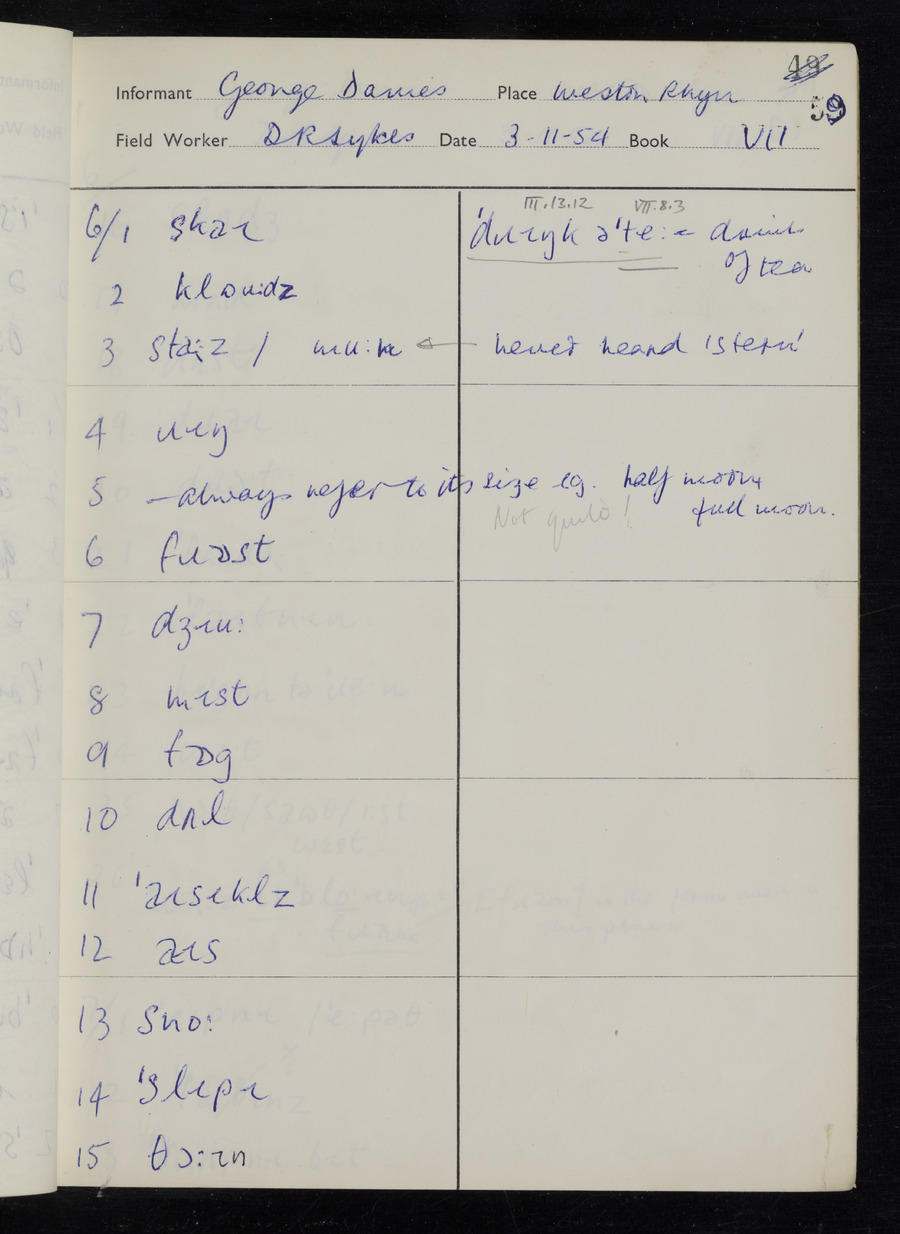 49
59
Informant George Davies Place Weston Rhyn
Field Worker D R Sykes Date 3-11-54 Book VII
6/1 skaɪ
III.13.12 VII.8.3
'dɹɪŋk ə'te: = drink of tea
2 klaudz
3 staːz / mu:n ← never heard 'stern'
4 ɹɪŋ
5 – always refer to its size eg. half moon,
full moon.
Not quite!
6 fɹɒst
7 dʒɪu:
8 mɪst
9 fɒg
10 dɹɪl
11 'aɪsɪklz
12 aɪs
13 sno:
14 'slɪpɪ
15 θɔ:ɪn